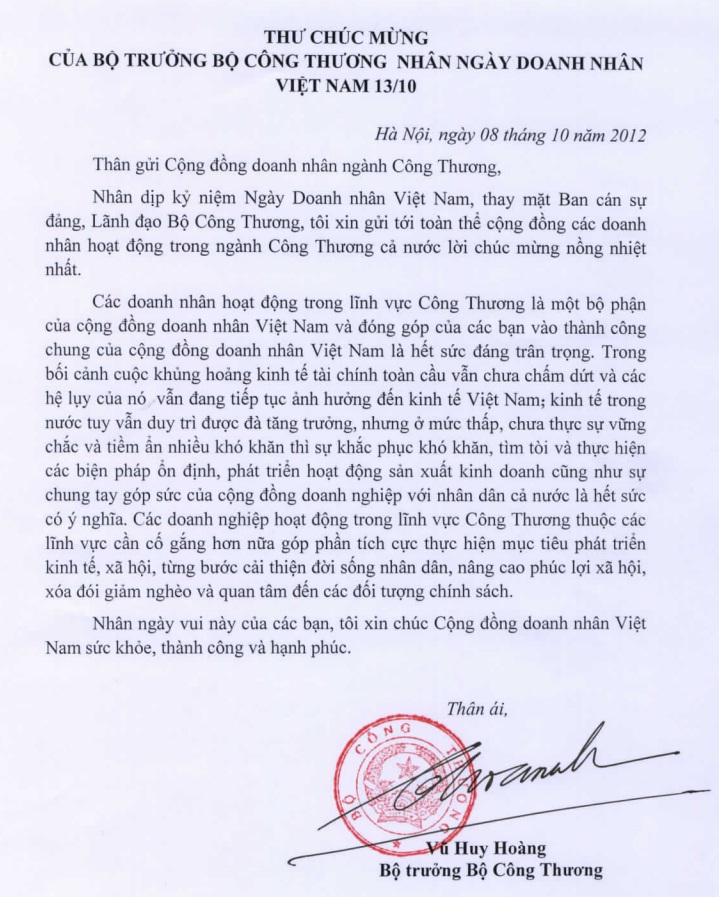 THƯ CHÚC MỪNG
CỦA BỘ TRƯỞNG BỘ CÔNG THƯƠNG NHÂN NGÀY DOANH NHÂN
VIỆT NAM 13/10
Hà Nội, ngày 08 tháng 10 năm 2012
Thân gửi Cộng đồng doanh nhân ngành Công Thương,
Nhân dịp kỷ niệm Ngày Doanh nhân Việt Nam, thay mặt Ban cán sự
đảng, Lãnh đạo Bộ Công Thương, tôi xin gửi tới toàn thể cộng đồng các doanh
nhân hoạt động trong ngành Công Thương cả nước lời chúc mừng nồng nhiệt
nhất.
Các doanh nhân hoạt động trong lĩnh vực Công Thương là một bộ phận
của cộng đồng doanh nhân Việt Nam và đóng góp của các bạn vào thành công
chung của cộng đồng doanh nhân Việt Nam là hết sức đáng trân trọng. Trong
bối cảnh cuộc khủng hoảng kinh tế tài chính toàn cầu vẫn chưa chấm dứt và các
hệ lụy của nó vẫn đang tiếp tục ảnh hưởng đến kinh tế Việt Nam; kinh tế trong
nước tuy vẫn duy trì được đà tăng trưởng, nhưng ở mức thấp, chưa thực sự vững
chắc và tiềm ẩn nhiều khó khăn thì sự khắc phục khó khăn, tìm tòi và thực hiện
các biện pháp ổn định, phát triển hoạt động sản xuất kinh doanh cũng như sự
chung tay góp sức của cộng đồng doanh nghiệp với nhân dân cả nước là hết sức
có ý nghĩa. Các doanh nghiệp hoạt động trong lĩnh vực Công Thương thuộc các
lĩnh vực cần cố gắng hơn nữa góp phần tích cực thực hiện mục tiêu phát triển
kinh tế, xã hội, từng bước cải thiện đời sống nhân dân, nâng cao phúc lợi xã hội,
xóa đói giảm nghèo và quan tâm đến các đối tượng chính sách.
Nhân ngày vui này của các bạn, tôi xin chúc Cộng đồng doanh nhân Việt
Nam sức khỏe, thành công và hạnh phúc.
Thân ái,
BỘ CÔNG THƯƠNG
Vũ Huy Hoàng
Bộ trưởng Bộ Công Thương